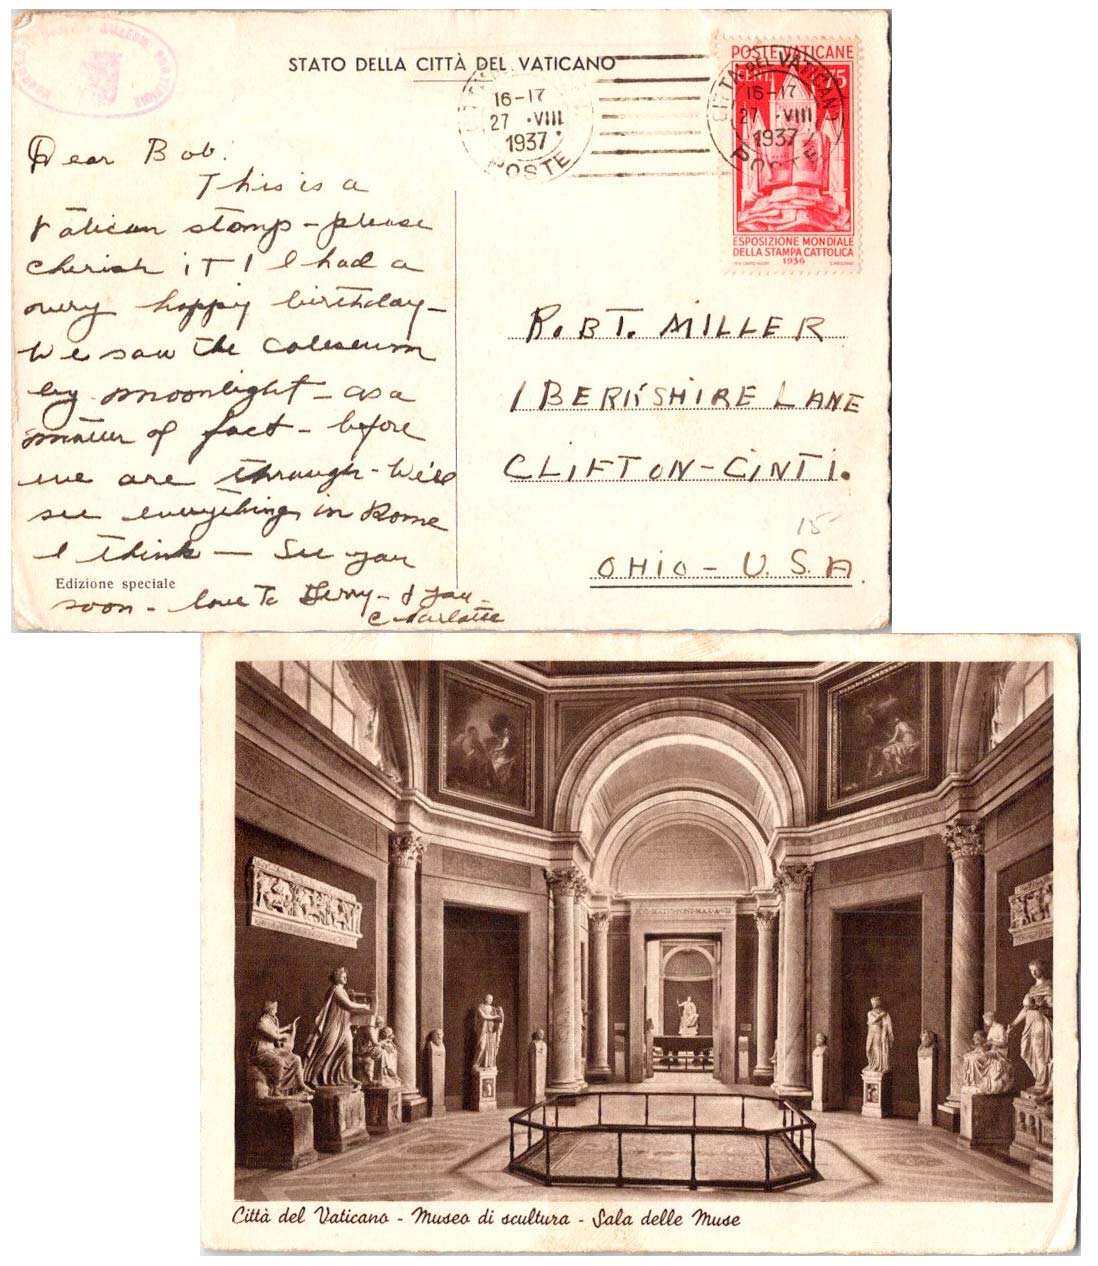 STATO DELLA CITTÀ DEL VATICANO
16-17
27 · VIII
1937
POSTE
CITTA DEL VATICANO
16-17
27 · VIII
1937
POSTE
POSTE VATICANE
CENT. 75
ESPOSIZIONE MONDIALE
DELLA STAMPA CATTOLICA
1936
Dear Bob:
This is a
Vatican stamp - please
cherish it! I had a
very happy birthday -
We saw the coliseum
by moonlight - as a
matter of fact - before
we are through - We'll
see everything in Rome
I think - See you
soon - love to Gerry - & you -
Charlotte
Edizione speciale
ROBT. MILLER
1 BERKSHIRE LANE
CLIFTON - CINTI.
15
OHIO - U.S.A.
Città del Vaticano - Museo di scultura - Sala delle Muse